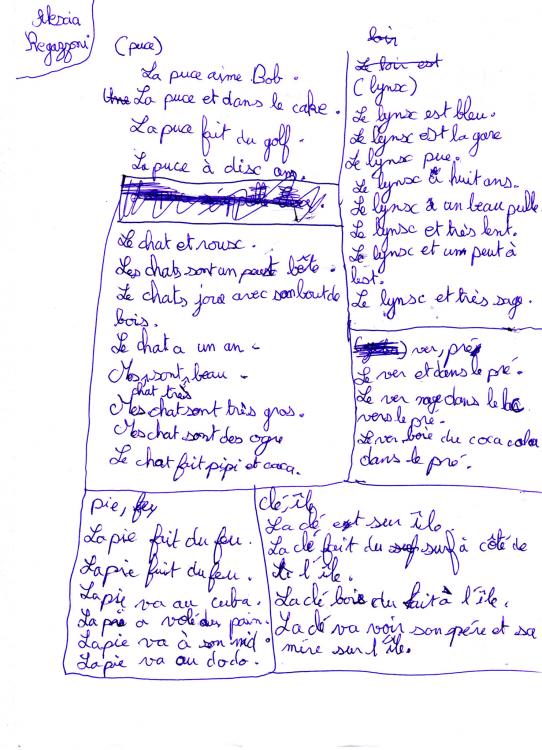 Alexia
Regazzoni
(puce)
La puce aime Bob.
La puce et dans le cake.
La puce fait du golf.
La puce à disc ans.
Le chat et roux.
Les chats sont un peut bête.
Le chats joue avec son bout de
bois.
Le chat a un an
Mes chat sont très beau
Mes chat sont très gros.
Mes chat sont des ogre
Le chat fait pipi et caca.
loir
Le loir est
(lynx)
Le lynx est bleu.
Le lynx est la gare
Le lynx pue.
Le lynx à huit ans.
Le lynx à un beau pulle
Le lynx et très lent.
Le lynx et um peut à
lest.
Le lynx et très sage.
ver, pré
Le ver et dans le pré.
Le ver nage dans le lac
vers le pré.
Le ver boie du coca cola
dans le pré.
pie, feu
La pie fait du feu.
La pie fait du feu.
La pie va au cuba.
La pie a volé du pain.
La pie va à son nid.
La pie va au dodo.
clé, île
La clé est sur île.
La clé fait du surf à côté de
l'île.
La clé boie du lait à l'île.
La clé va voir son père et sa
mère sur l'île.